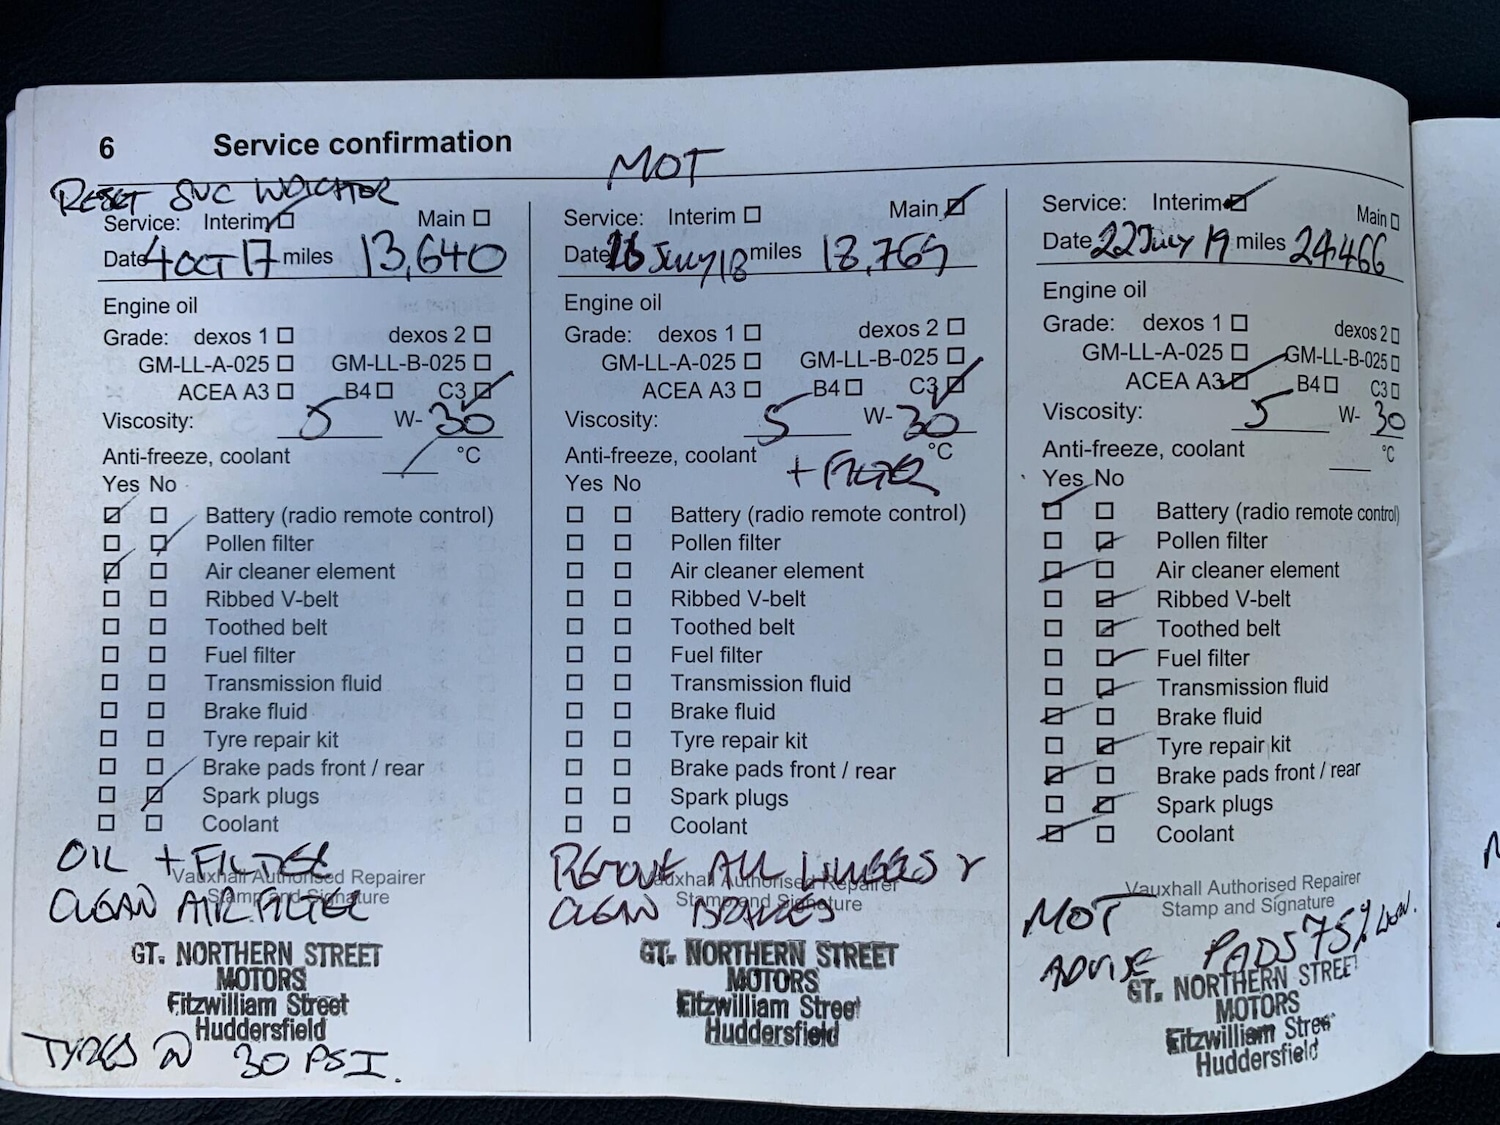 6 Service confirmation
MOT
RESET SVC
Service: Interim Main
Date 4 OCT 17 miles 13,640
Engine oil
Grade: dexos 1 dexos 2
GM-LL-A-025 GM-LL-B-025
ACEA A3 B4 C3
Viscosity: 5 W- 30
Anti-freeze, coolant °C
Yes No
Battery (radio remote control)
Pollen filter
Air cleaner element
Ribbed V-belt
Toothed belt
Fuel filter
Transmission fluid
Brake fluid
Tyre repair kit
Brake pads front / rear
Spark plugs
Coolant
OIL + FILTER
Vauxhall Authorised Repairer
Stamp and Signature
CLEAN AIR FILTER
GT. NORTHERN STREET
MOTORS
Fitzwilliam Street
Huddersfield
TYRES @ 30 PSI.
Service: Interim Main
Date July 18 miles 18,769
Engine oil
Grade: dexos 1 dexos 2
GM-LL-A-025 GM-LL-B-025
ACEA A3 B4 C3
Viscosity: 5 W- 30
Anti-freeze, coolant °C
+ FILTER
Yes No
Battery (radio remote control)
Pollen filter
Air cleaner element
Ribbed V-belt
Toothed belt
Fuel filter
Transmission fluid
Brake fluid
Tyre repair kit
Brake pads front / rear
Spark plugs
Coolant
REMOVE ALL WHEELS &
Vauxhall Authorised Repairer
Stamp and Signature
CLEAN BRAKES
GT. NORTHERN STREET
MOTORS
Fitzwilliam Street
Huddersfield
Service: Interim Main
Date 22 July 19 miles 24,466
Engine oil
Grade: dexos 1 dexos 2
GM-LL-A-025 GM-LL-B-025
ACEA A3 B4 C3
Viscosity: 5 W- 30
Anti-freeze, coolant °C
Yes No
Battery (radio remote control)
Pollen filter
Air cleaner element
Ribbed V-belt
Toothed belt
Fuel filter
Transmission fluid
Brake fluid
Tyre repair kit
Brake pads front / rear
Spark plugs
Coolant
Vauxhall Authorised Repairer
Stamp and Signature
MOT
ADVISE PADS 75%
GT. NORTHERN STREET
MOTORS
Fitzwilliam Street
Huddersfield